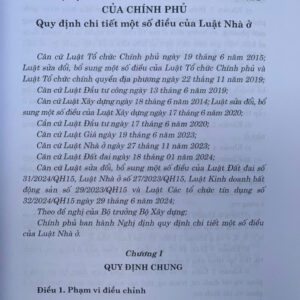 CỦA CHÍNH PHỦ
Quy định chi tiết một số điều của Luật Nhà ở
Căn cứ Luật Tổ chức Chính phủ ngày 19 tháng 6 năm 2015;
Luật sửa đổi, bổ sung một số điều của Luật Tổ chức Chính phủ và
Luật Tổ chức chính quyền địa phương ngày 22 tháng 11 năm 2019;
Căn cứ Luật Đầu tư công ngày 13 tháng 6 năm 2019;
Căn cứ Luật Xây dựng ngày 18 tháng 6 năm 2014; Luật sửa đổi, bổ
sung một số điều của Luật Xây dựng ngày 17 tháng 6 năm 2020;
Căn cứ Luật Đầu tư ngày 17 tháng 6 năm 2020;
Căn cứ Luật Giá ngày 19 tháng 6 năm 2023;
Căn cứ Luật Nhà ở ngày 27 tháng 11 năm 2023;
Căn cứ Luật Đất đai ngày 18 tháng 01 năm 2024;
Căn cứ Luật sửa đổi, bổ sung một số điều của Luật Đất đai số
31/2024/QH15, Luật Nhà ở số 27/2023/QH15, Luật Kinh doanh bất
động sản số 29/2023/QH15 và Luật Các tổ chức tín dụng số
32/2024/QH15 ngày 29 tháng 6 năm 2024;
Theo đề nghị của Bộ trưởng Bộ Xây dựng;
Chính phủ ban hành Nghị định quy định chi tiết một số điều
của Luật Nhà ở.
Chương I
QUY ĐỊNH CHUNG
Điều 1. Phạm vi điều chỉnh